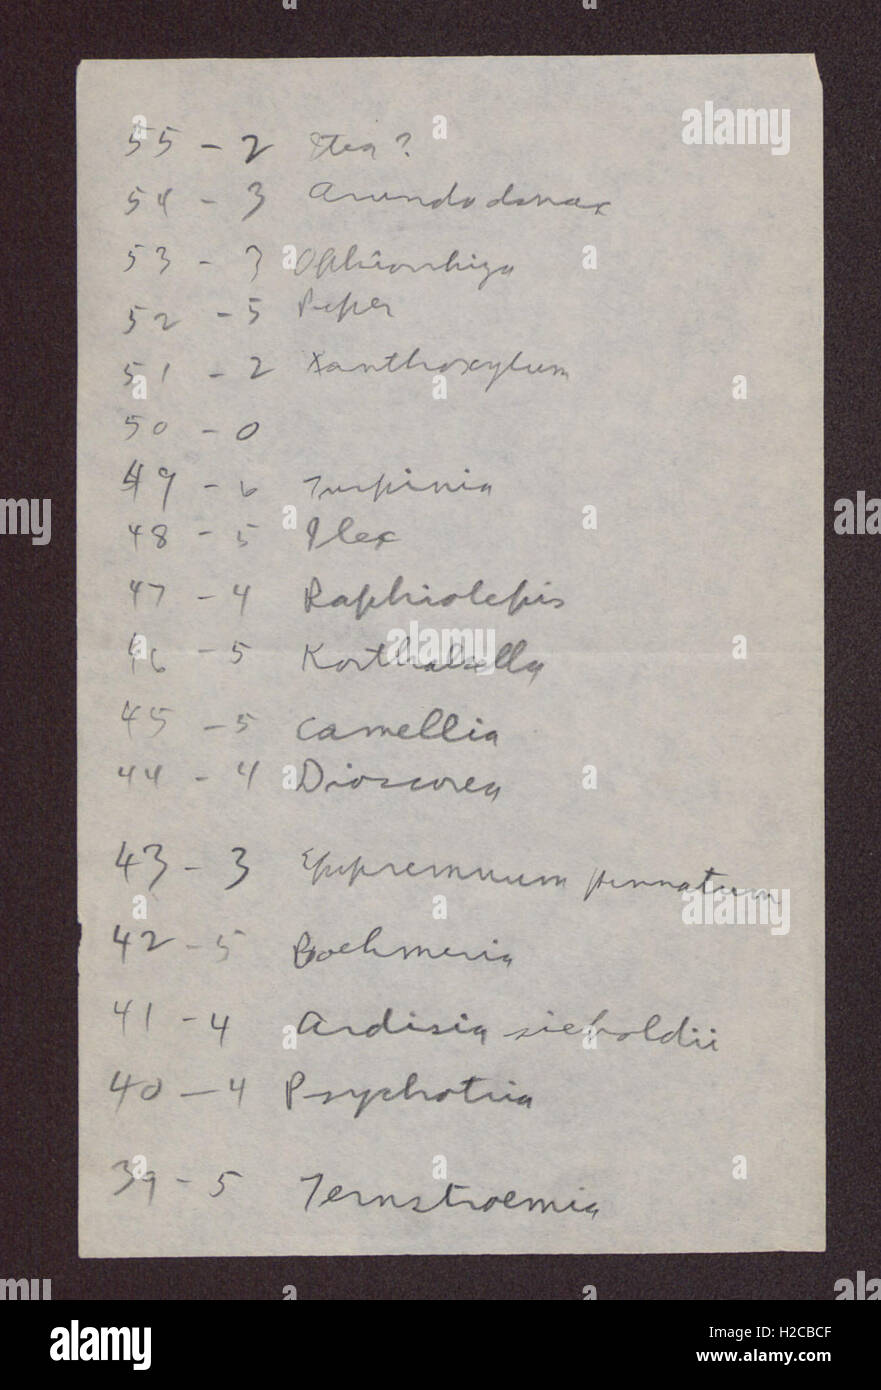 55 - 2 Itea?
54 - 3 Arundo donax
53 - 3 Ophiorrhiza
52 - 5 Piper
51 - 2 Xanthoxylum
50 - 0
49 - 6 Turpinia
48 - 5 Ilex
47 - 4 Raphiolepis
46 - 5 Korthalsella
45 - 5 Camellia
44 - 4 Dioscorea
43 - 3 Epipremnum pinnatum
42 - 5 Boehmeria
41 - 4 Ardisia sieboldii
40 - 4 Psychotria
39 - 5 Ternstroemia
alamy
a
alamy stock photo
H2CBCF
www.alamy.com